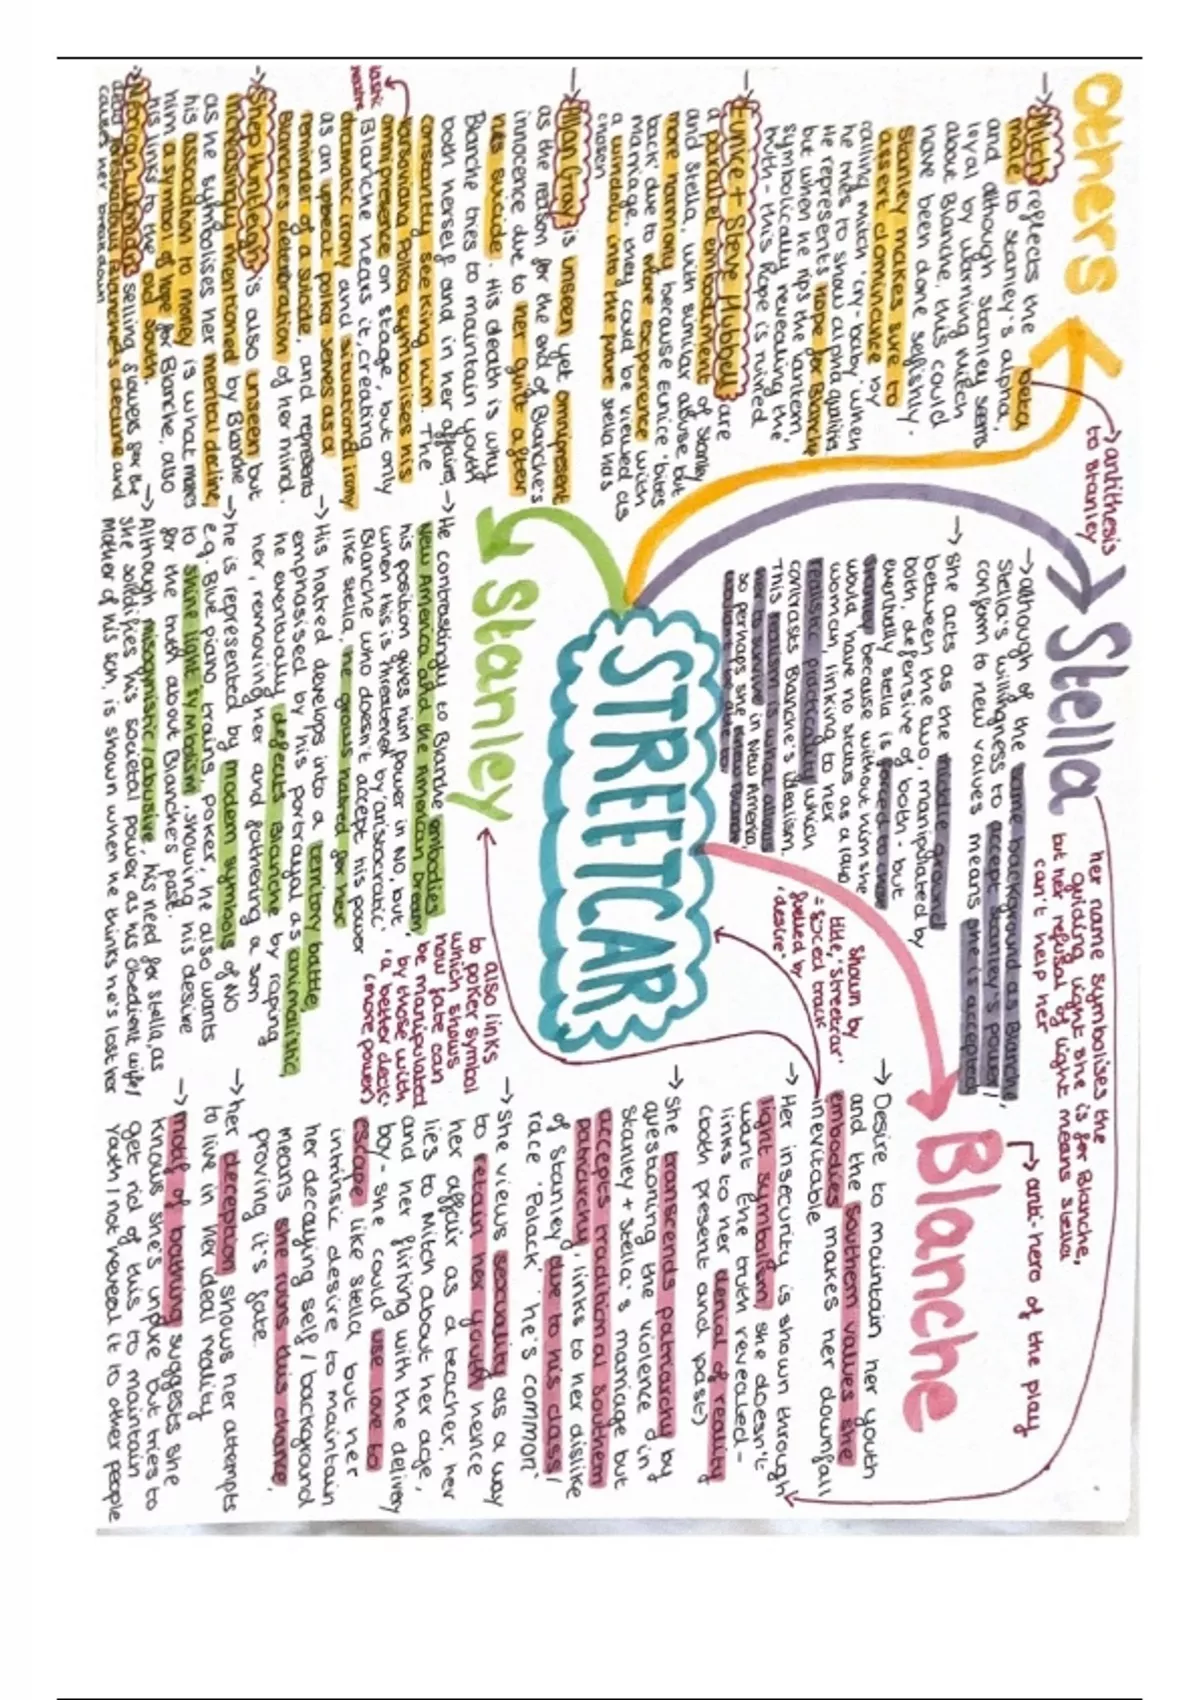 Others
→ Mitch reflects the beta
male to Stanley's alpha,
and although Stanley seems
loyal by warning Mitch
about Blanche, this could
have been done selfishly.
Stanley makes sure to
assert dominance by
calling Mitch 'cry-baby' when
he tries to show alpha qualities
He represents hope for Blanche
but when he rips the lantern,
symbolically revealing the
truth - this hope is ruined
→ antithesis
to Stanley
→ Eunice + Steve Hubbell are
a parallel embodiment of Stanley
and Stella, with similar abuse but
more harmony because Eunice 'bites
back' due to more experience with
marriage, they could be viewed as
a window into the future Stella has
chosen
→ Allan Grey is unseen yet omnipresent
as the reason for the end of Blanche's
innocence due to her guilt after
his suicide. His death is why
Blanche tries to maintain youth
both herself and in her affairs,
constantly seeking him. The
Varsouvian Polka symbolises his
omnipresence on stage, but only
Blanche hears it, creating
dramatic irony and situational irony
as an upbeat polka serves as a
reminder of a suicide, and represents
Blanche's deterioration of her mind.
→ Shep Huntleigh is also unseen but
increasingly mentioned by Blanche
as he symbolises her mental decline,
his association to money is what makes
him a symbol of hope for Blanche, also
his links to the old South.
→ Mexican Woman selling flowers for the
dead foreshadows Blanche's decline and
causes her break down
Stella
her name symbolises the
guiding light she is for Blanche,
but her refusal of light means Stella
can't help her
→ although of the same background as Blanche,
Stella's willingness to accept Stanley's power/
conform to new values means she is accepted
→ She acts as the middle ground
between the two, manipulated by
both, defensive of both - but
eventually Stella is forced to chose
Stanley because without him she
would have no status as a 1940
woman, linking to her
realistic practicality which
contrasts Blanche's idealism.
This realism is what allows
her to survive in New America,
so perhaps she knew Blanche
wouldn't be able to.
STREETCAR
Stanley
→ He contrastingly to Blanche embodies
New America and the American Dream,
his position gives him power in NO, but
when this is threatened by 'aristocratic'
Blanche who doesn't accept his power
like Stella, he grows hatred for her
→ His hatred develops into a territory battle,
emphasised by his portrayal as animalistic,
he eventually defeats Blanche by raping
her, removing her and fathering a son
→ he is represented by modern symbols of NO
e.g. Blue piano, trains, poker, he also wants
to shine light symbolism, showing his desire
for the truth about Blanche's past.
→ Although misogynistic/abusive, his need for Stella, as
she solidifies his societal power as his obedient wife/
mother of his son, is shown when he thinks he's lost her
also links
to poker symbol
which shows
how fate can
be manipulated
by those with
'a better deck'
(more power)
Blanche
→ anti-hero of the play
→ Desire to maintain her youth
and the Southern values she
embodies makes her downfall
inevitable
shown by
title, 'streetcar'
= fixed track
fuelled by
'desire'
→ Her insecurity is shown through
light symbolism, she doesn't
want the truth revealed -
links to her denial of reality
(both present and past)
→ She transcends patriarchy by
questioning the violence in
Stanley + Stella's marriage but
accepts traditional southern
patriarchy, links to her dislike
of Stanley due to his class/
race 'Polack' he's 'common'
→ She views sexuality as a way
to retain her youth hence
her affair as a teacher, her
lies to Mitch about her age,
and her flirting with the delivery
boy - she could use love to
escape like Stella but her
intrinsic desire to maintain
her decaying self/background
means she ruins this chance,
proving it's fate.
→ her deception shows her attempts
to live in her ideal reality
→ motif of bathing suggests she
knows she's unpure but tries to
get rid of this to maintain
youth/not reveal it to other people